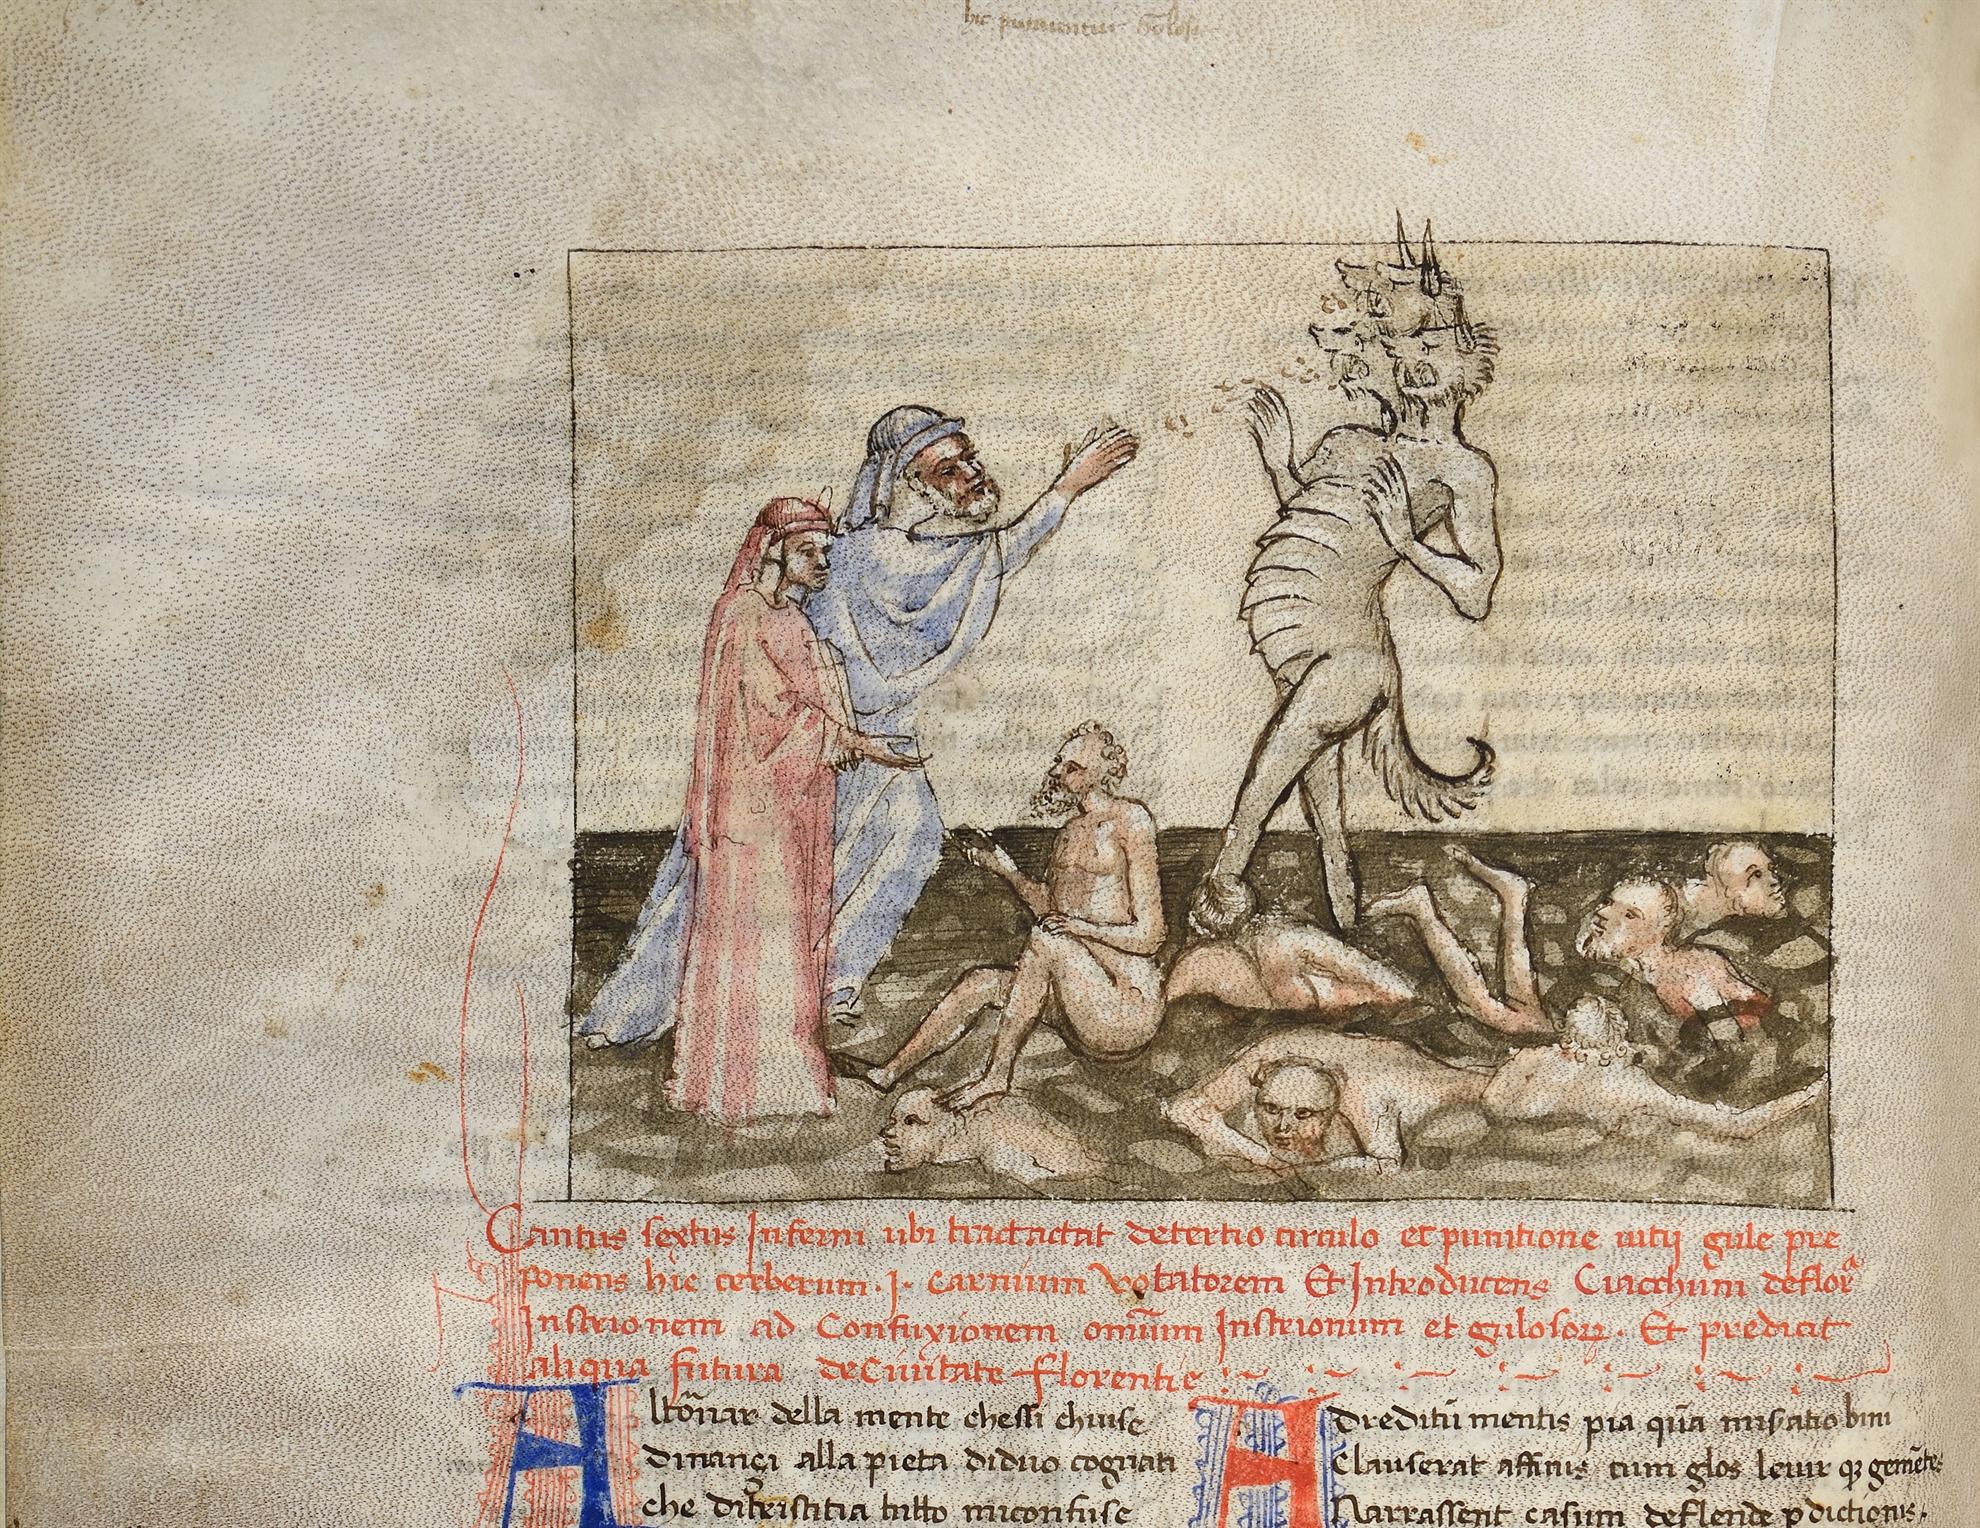 hic puniuntur Golosi
Cantus sextus Inferni ubi tractactat de tertio circulo et punitione uitij gule pre
ponens hic cerberum .i. carnium vo tatorem Et Introducens Ciacchum de flor
Instrionem ad Confuxionem omnium Instrionum et gulosorum. Et predicit
aliqua futura de Ciuitate florentie
Al tornar della mente chessi chiuse
dinançi alla pieta di duo cognati
che di tristitia tutto mi confuse
Ad reditū mentis pia qūa misatio bini
Clauserat affinis cum glos leuir qȝ gemētes
Narrassent casum deflende pdictionis.